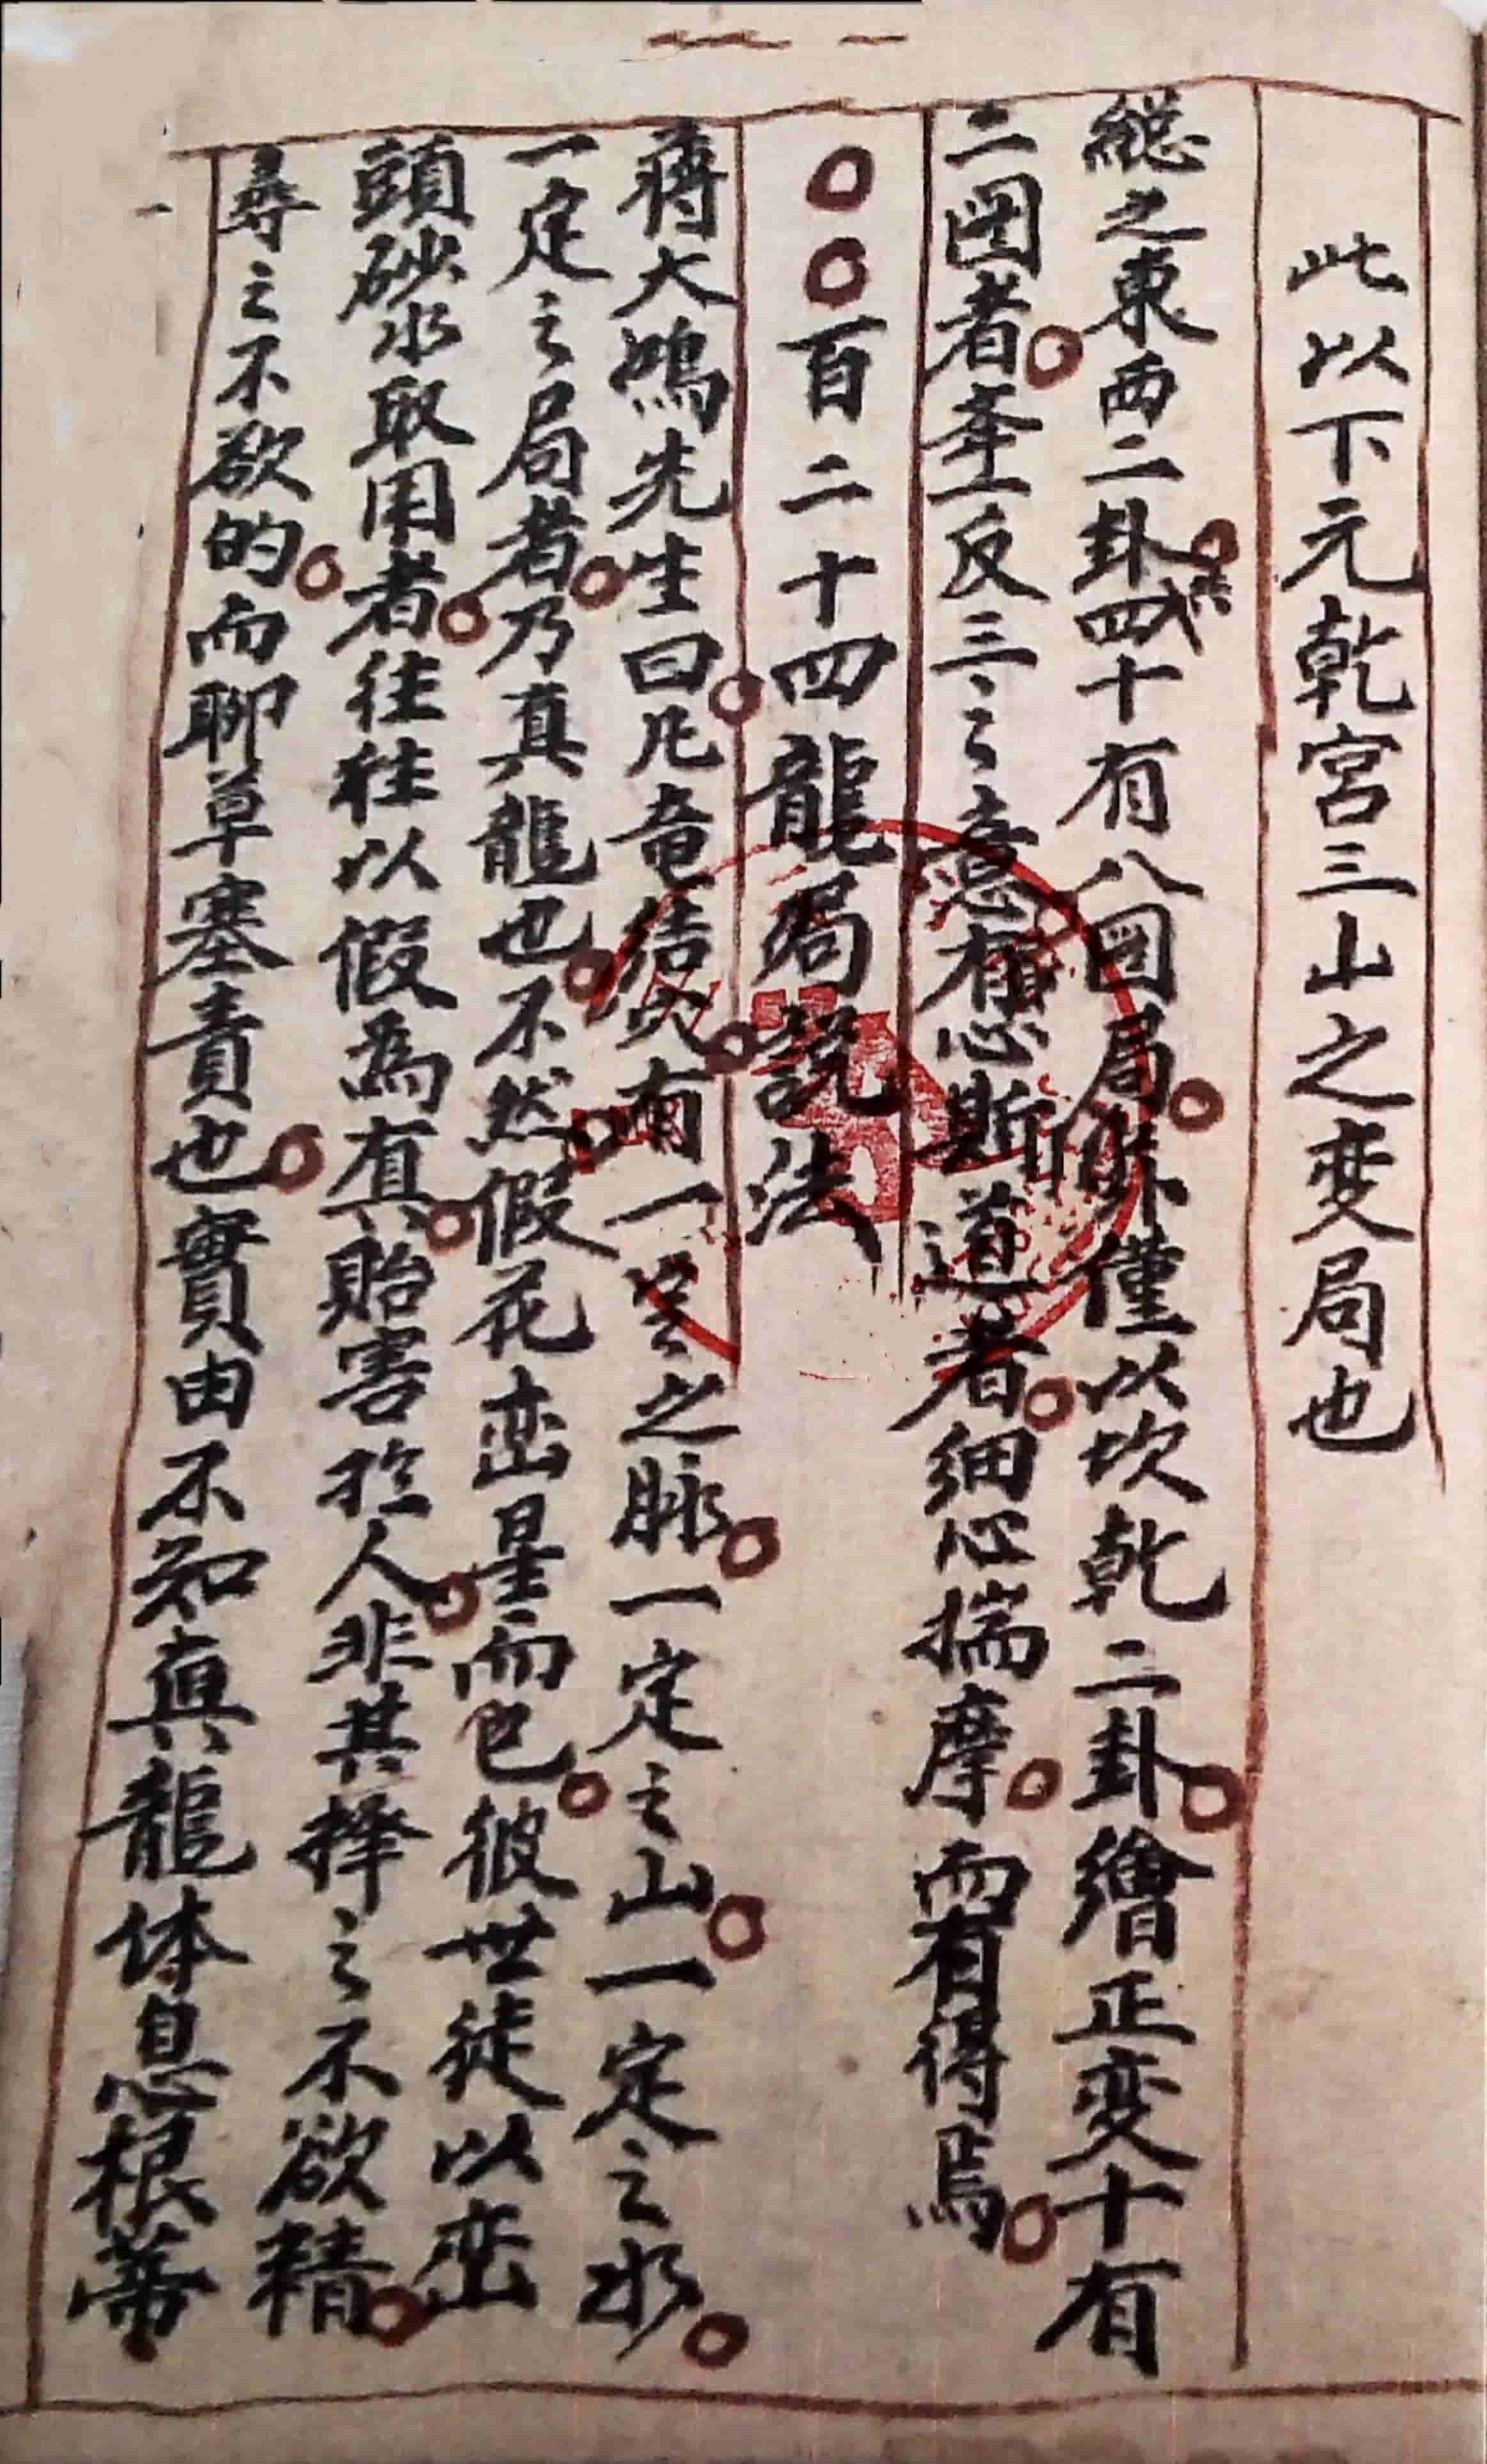 此以下元乾宮三山之变局也
總之東西二卦共成四十有八图局兹僅以坎乾二卦繪正变十有
二图者举一反三之意有心斯道者細心揣摩而有得焉
百二十四龍局説法
蔣大鴻先生曰凡竜结穴有一定之脉一定之山一定之水
一定之局者乃真龍也不然假花峦星而已彼世徒以峦
頭砂水取用者徃徃以假為真貽害扵人非其擇之不欲精
尋之不欲的而聊草塞責也實由不知真龍体息根蒂